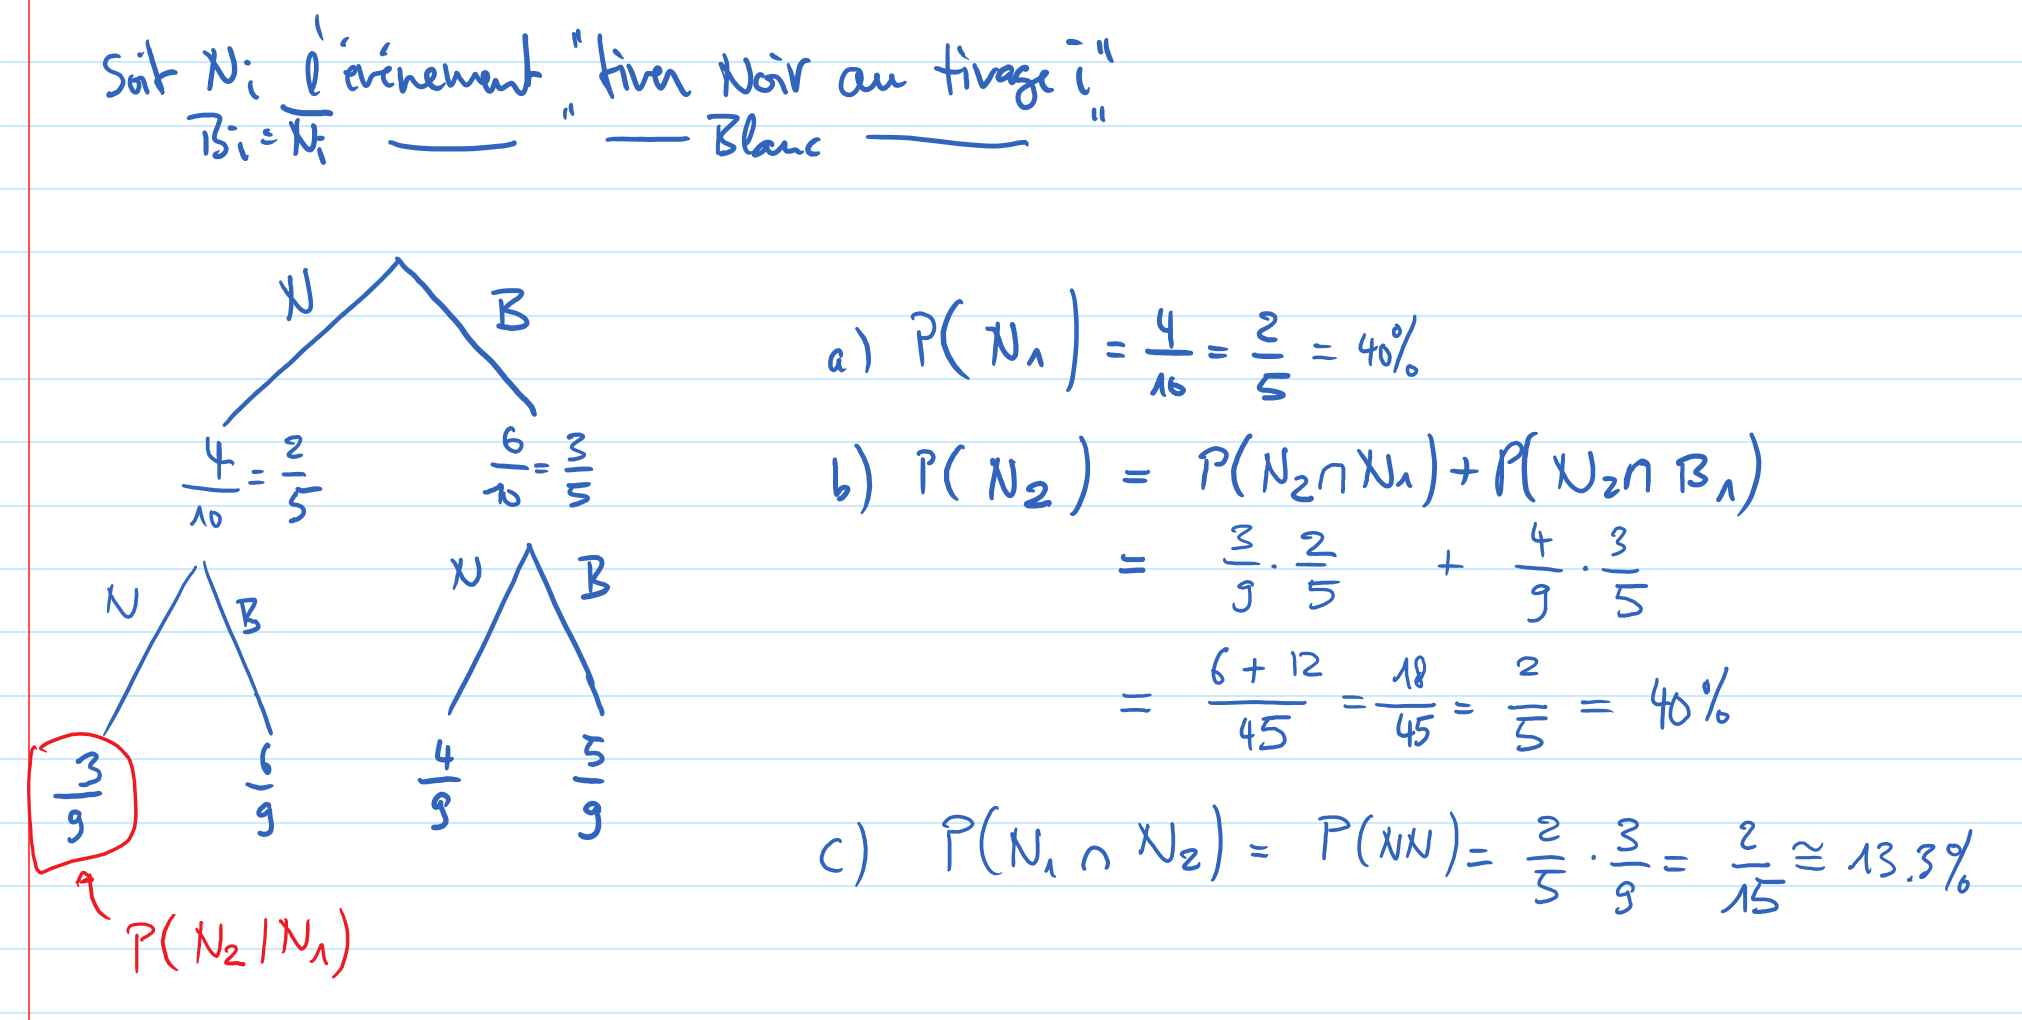 Soit Ni l'évènement "tirer Noir au tirage i"
Bi = N̅i ——— " ——— Blanc ——— "
N B
4/10 = 2/5 6/10 = 3/5
N B N B
3/9 6/9 4/9 5/9
P(N₂|N₁)
a) P(N₁) = 4/10 = 2/5 = 40%
b) P(N₂) = P(N₂∩N₁) + P(N₂∩B₁)
= 3/9 · 2/5 + 4/9 · 3/5
= (6 + 12)/45 = 18/45 = 2/5 = 40%
c) P(N₁ ∩ N₂) = P(NN) = 2/5 · 3/9 = 2/15 ≅ 13.3%